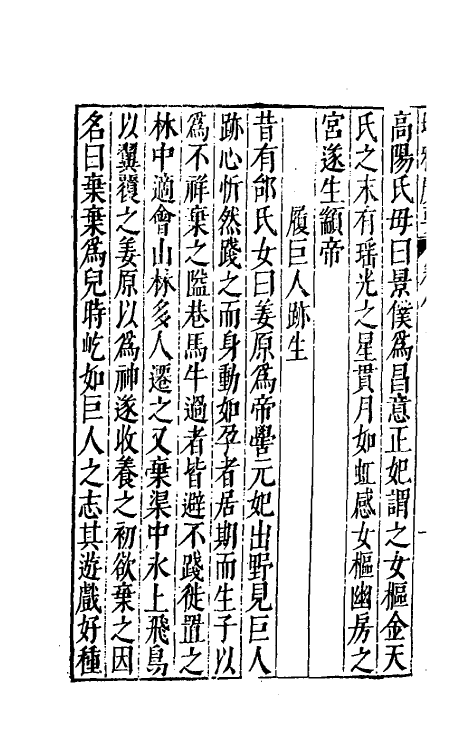 高陽氏母曰景僕爲昌意正妃謂之女樞金天
氏之末有瑶光之星貫月如虹感女樞幽房之
宮遂生顓帝
履巨人跡生
昔有邰氏女曰姜原爲帝嚳元妃出野見巨人
跡心忻然踐之而身動如孕者居期而生子以
爲不祥棄之隘巷馬牛過者皆避不踐徙置之
林中適會山林多人遷之又棄渠中氷上飛鳥
以翼覆之姜原以爲神遂收養之初欲棄之因
名曰棄棄爲兒時屹如巨人之志其遊戲好種